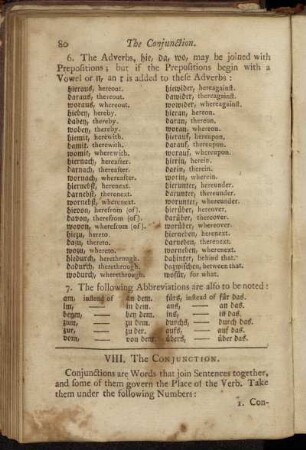 80 The Conjunction.
6. The Adverbs, hie, da, wo, may be joined with
Prepositions; but if the Prepositions begin with a
Vowel or n, an r is added to these Adverbs:
hieraus, hereout. hiewider, hereagainst.
daraus, thereout. dawider, thereagainst.
woraus, whereout. wowider, whereagainst.
hiebey, hereby. hieran, hereon.
dabey, thereby. daran, thereon.
wobey, thereby. woran, whereon.
hiemit, herewith. hierauf, hereupon.
damit, therewith. darauf, thereupon.
womit, wherewith. worauf, whereupon.
hiernach, hereafter. hierin, herein.
darnach, thereafter. darin, therein.
wornach, whereafter. worin, wherein.
hiernebst, herenext. hierunter, hereunder.
darnebst, therenext. darunter, thereunder.
wornebst, wherenext. worunter, whereunder.
hievon, herefrom (of). hierüber, hereover.
davon, therefrom (of). darüber, thereover.
wovon, wherefrom (of). worüber, whereover.
hiezu, hereto. hierneben, herenext.
dazu, thereto. darneben, therenext.
wozu, whereto. worneben, wherenext.
hiedurch, herethrough. dahinter, behind that.
dadurch, therethrough. dazwischen, between that.
wodurch, wherethrough. wofür, for what.
7. The following Abbreviations are also to be noted:
am, instead of an dem. fürs, instead of für das.
im, — in dem. ans, — an das.
beym, — bey dem. ins, — in das.
zum, — zu dem. durchs, — durch das.
zur, — zu der. aufs, — auf das.
vom, — von dem. übers, — über das.
VIII. The CONJUNCTION.
Conjunctions are Words that join Sentences together,
and some of them govern the Place of the Verb. Take
them under the following Numbers:
1. Con-